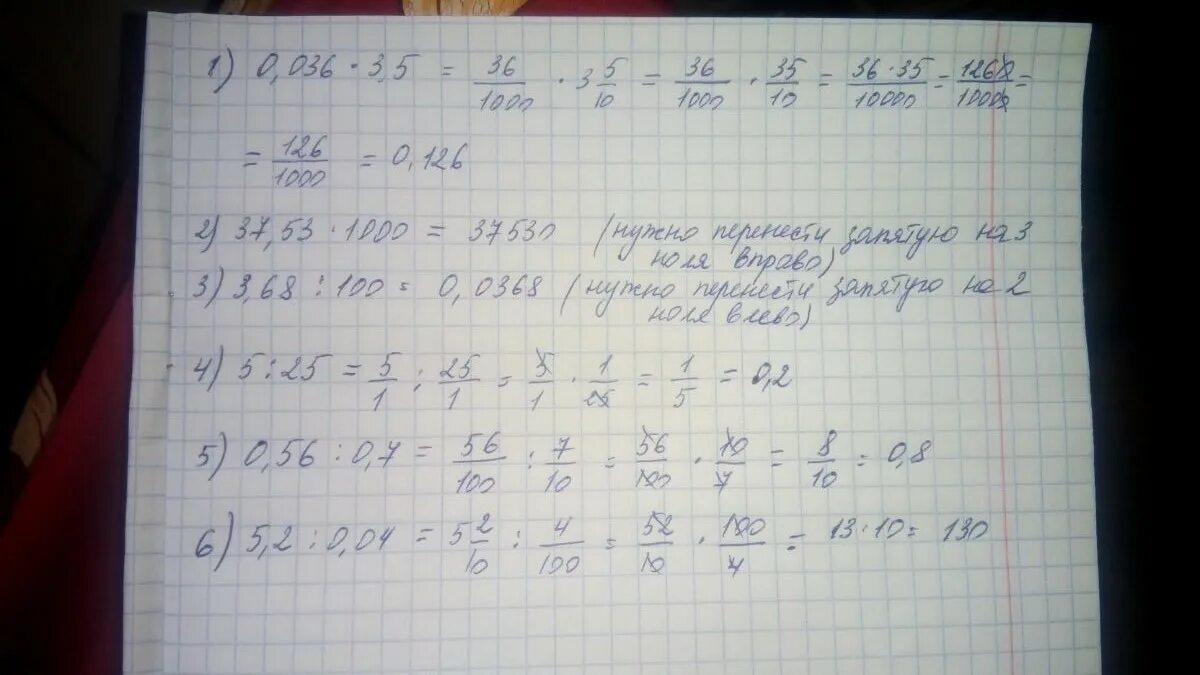 1) 0,036 · 3,5 = 36/1000 · 3 5/10 = 36/1000 · 35/10 = 36·35/10000 = 1260/10000 =
= 126/1000 = 0,126
2) 37,53 · 1000 = 37530 (нужно перенести запятую на 3
ноля вправо)
3) 3,68 : 100 = 0,0368 (нужно перенести запятую на 2
ноля влево)
4) 5 : 25 = 5/1 : 25/1 = 5/1 · 1/25 = 1/5 = 0,2
5) 0,56 : 0,7 = 56/100 : 7/10 = 56/100 · 10/7 = 8/10 = 0,8
6) 5,2 : 0,04 = 5 2/10 : 4/100 = 52/10 · 100/4 = 13·10 = 130